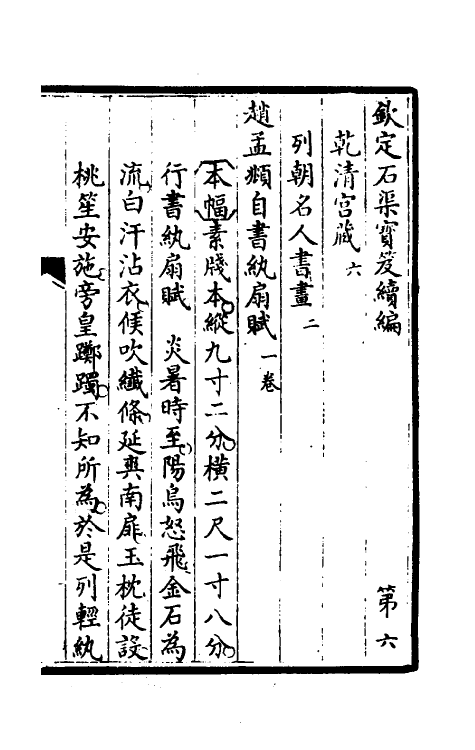 欽定石渠寳笈續編　第六
乾清宫藏 六
列朝名人書畫 二
趙孟頫自書紈扇賦 一卷
本幅素牋本縱九寸二分橫二尺一寸八分
行書紈扇賦　炎暑時至陽烏怒飛金石為
流白汗沾衣候吹纖絛延爽南扉玉枕徒設
桃笙安施旁皇躑躅不知所為於是列輕紈